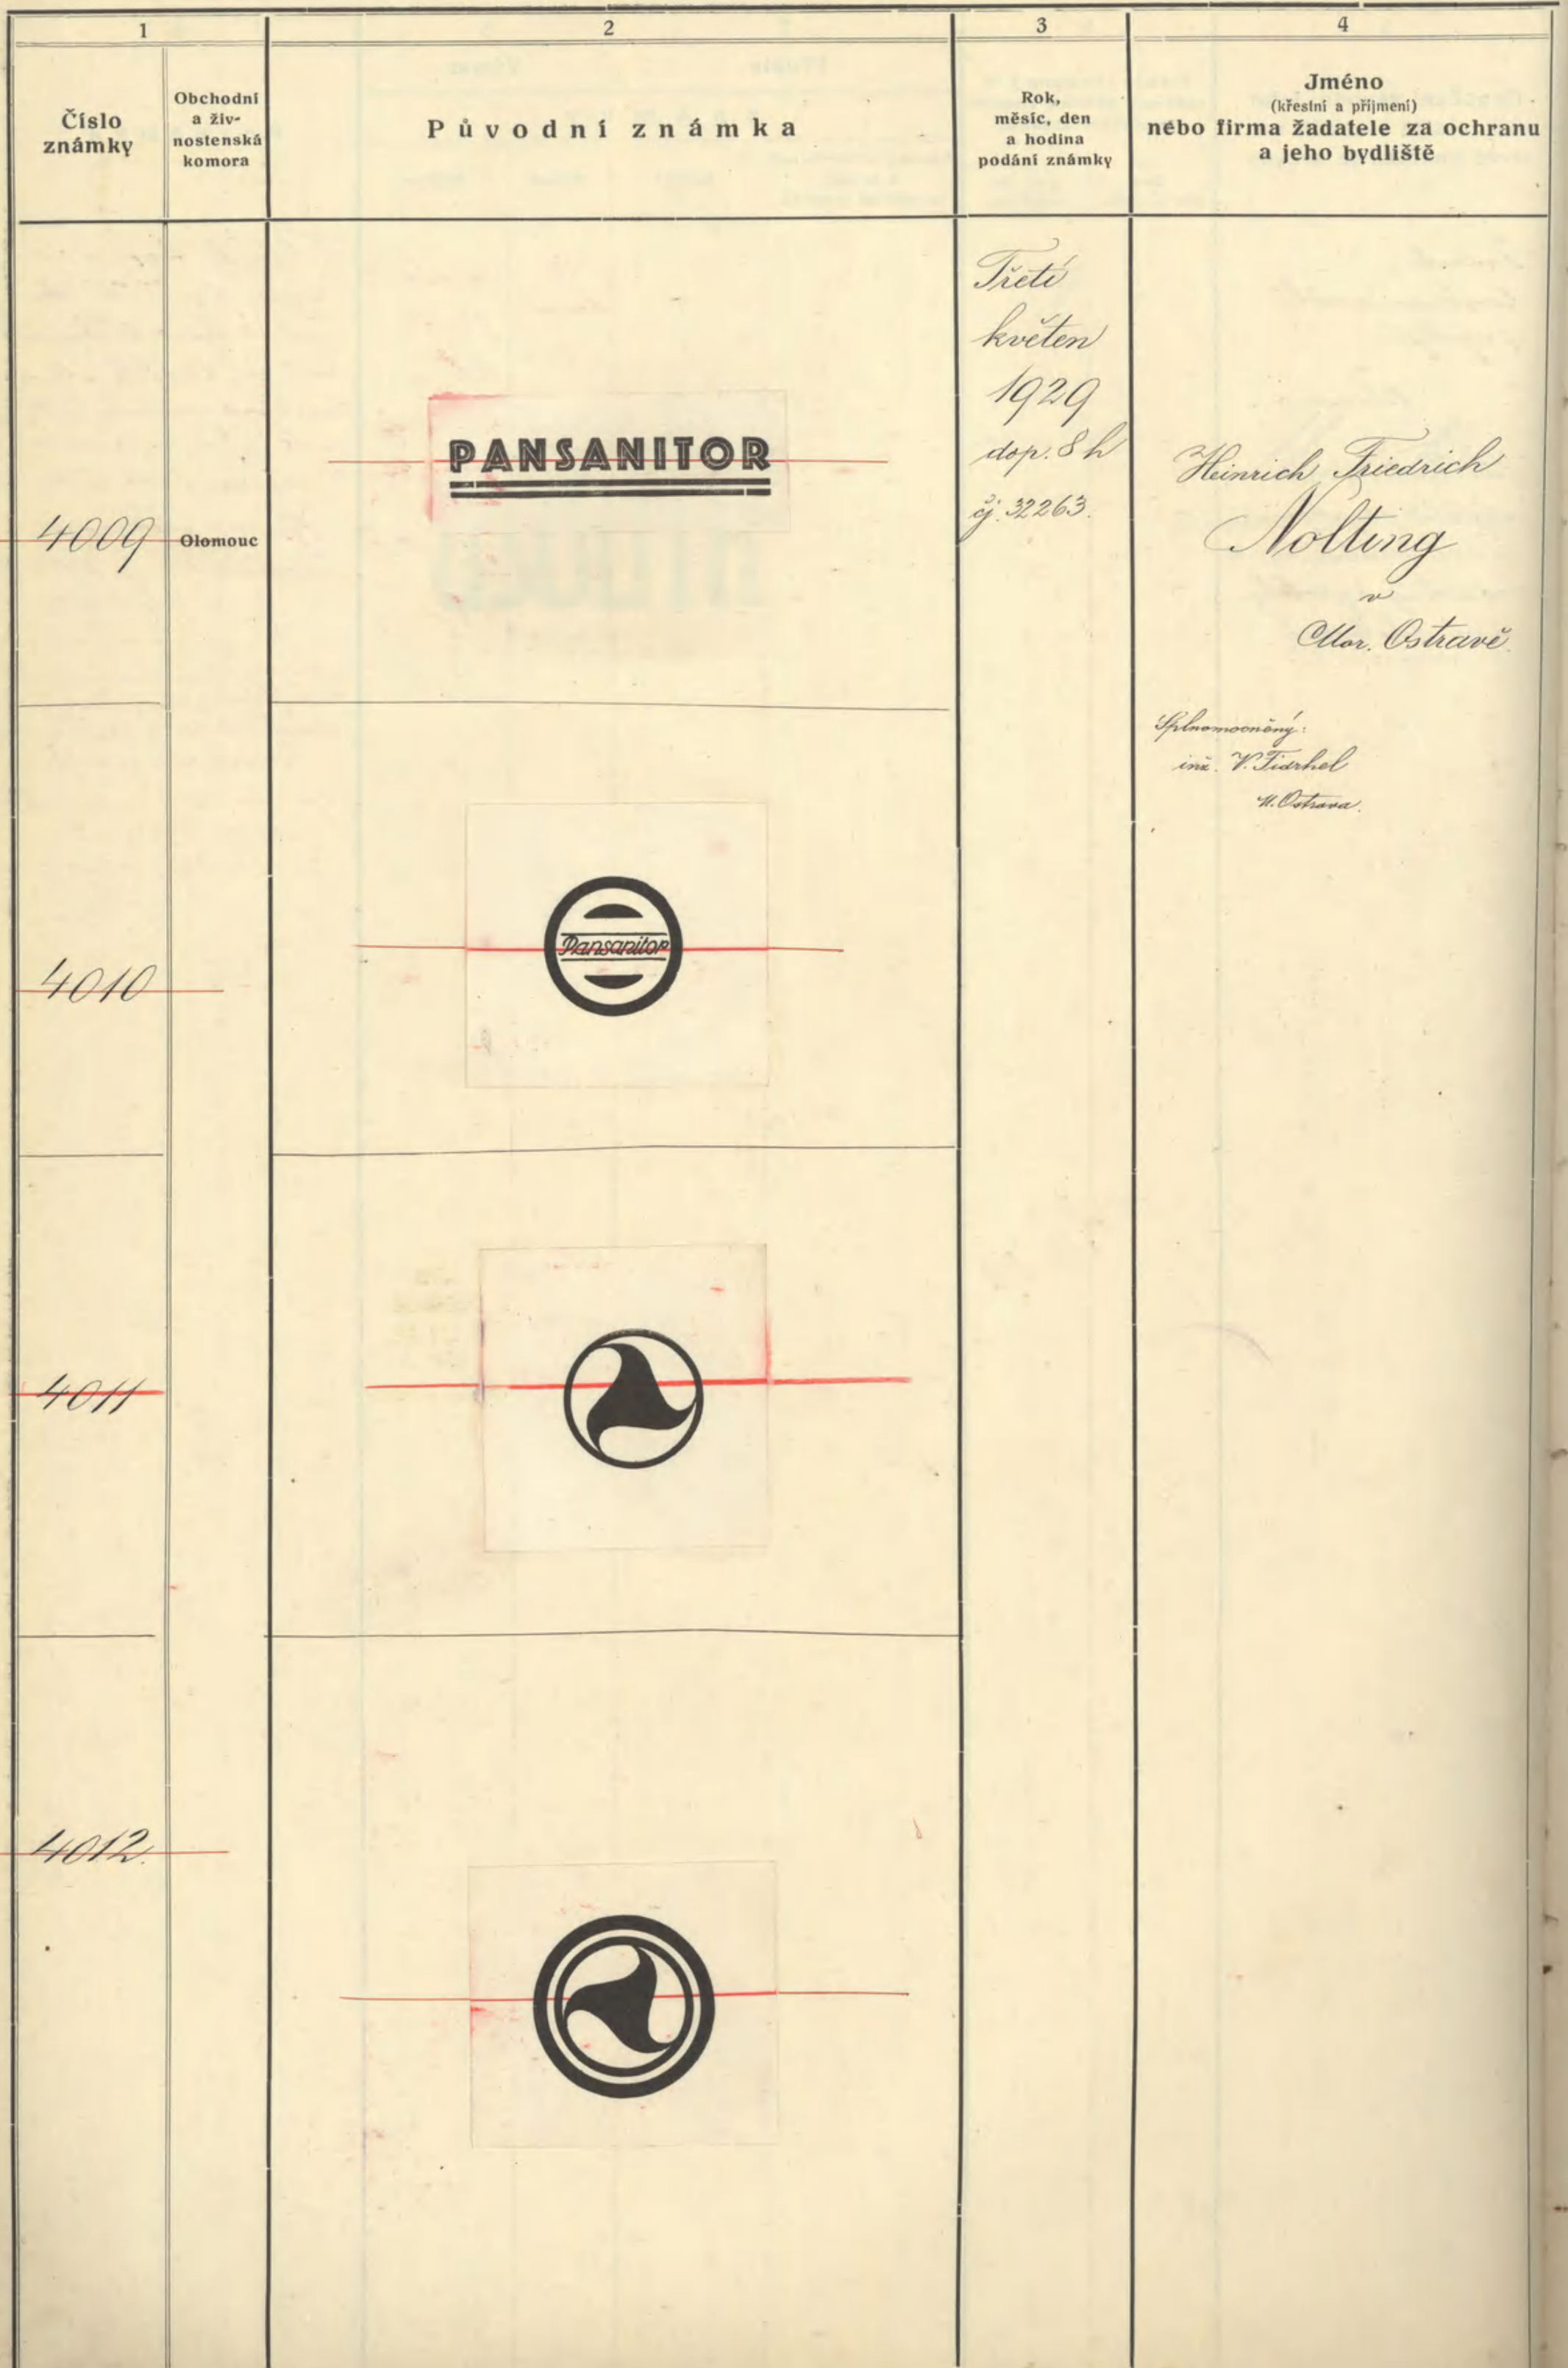 1
2
3
4
Číslo
známky
Obchodní
a živ-
nostenská
komora
Původní známka
Rok,
měsíc, den
a hodina
podání známky
Jméno
(křestní a příjmení)
nebo firma žadatele za ochranu
a jeho bydliště
4009
Olomouc
PANSANITOR
Třetí
květen
1929
dop. 8 h
čj. 32263.
Heinrich Friedrich
Nolting
v
Mor. Ostravě.
Splnomocněný:
inž. V.
M. Ostrava.
4010
Pansanitor
4011
4012.